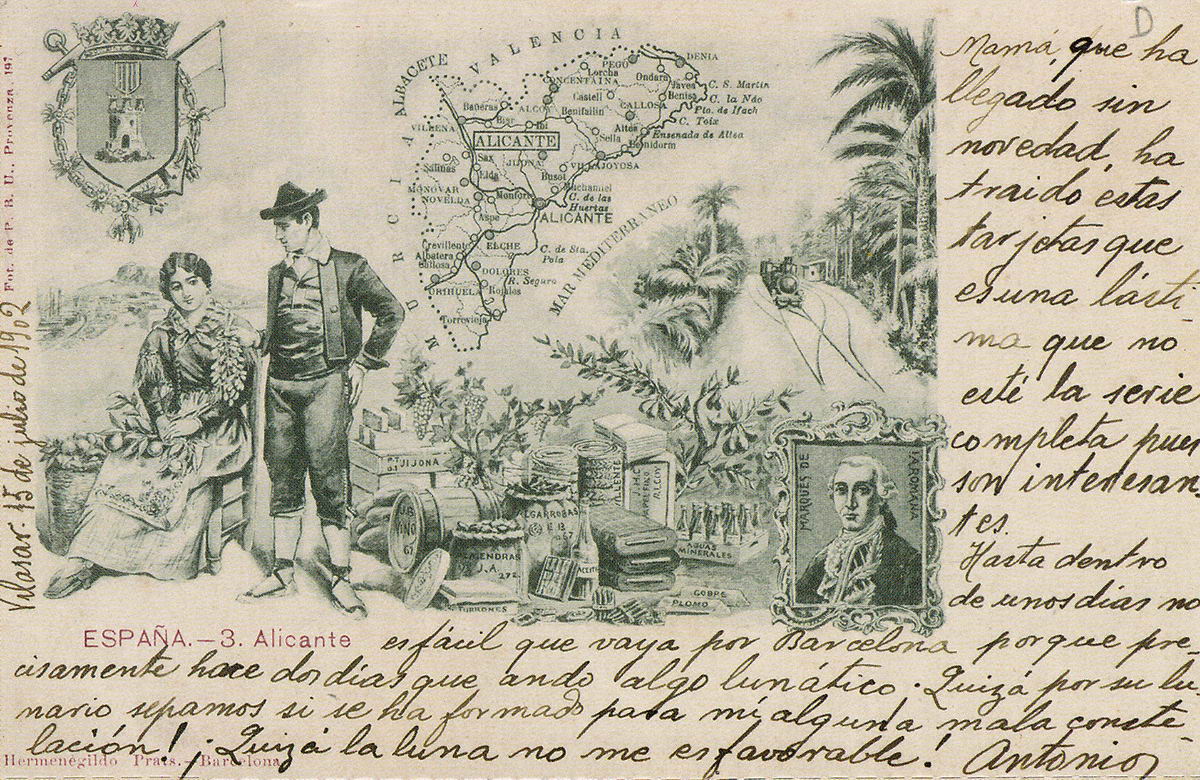 D
Mamá, que ha
llegado sin
novedad, ha
traido estas
tarjetas que
es una lásti-
ma que no
esté la serie
completa pues
son interesan
tes.
Hasta dentro
de unos dias no
es fácil que vaya por Barcelona porque pre-
cisamente hace dos dias que ando algo lunático. Quizá por su lu
nario sepamos si se ha formado para mi alguna mala conste-
lación! ¡Quizá la luna no me es favorable! Antonio
Vilasar 15 de julio de 1902
Fot. de P. B. U., Provenza, 197
ESPAÑA.—3. Alicante
Hermenegildo Prats.—Barcelona
VALENCIA
ALBACETE
MURCIA
MAR MEDITERRANEO
DENIA
PEGO
Lorcha
Ondara
CONCENTAINA
Javea
C. S. Martin
Castell
Benisa
C. la Náo
Bañeras
ALCOY
CALLOSA
Pto. de Ifach
Benifallin
C. Toix
Biar
Ibi
Altea
Ensenada de Altea
VILLENA
Sella
Benidorm
ALICANTE
Sax
JIJONA
VILLAJOYOSA
Salinas
Elda
Busot
MONOVAR
Muchamiel
NOVELDA
Monforte
C. de las
Huertas
Aspe
ALICANTE
Crevillente
ELCHE
C. de Sta.
Pola
Albatera
Callosa
DOLORES
R. Seguro
ORIHUELA
Rojales
Torrevieja
JIJONA
VINO
67
ALGARROBAS
ALMENDRAS
J. A.
272
TURRONES
ACEITE
AGUAS
MINERALES
COBRE
PLOMO
MARQUES DE
LA ROMANA